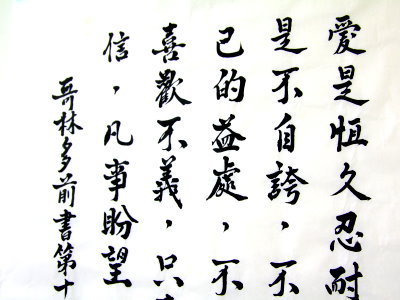 愛是恒久忍耐
是不自誇，不
己的益處，不
喜歡不義，只
信，凡事盼望
哥林多前書第十